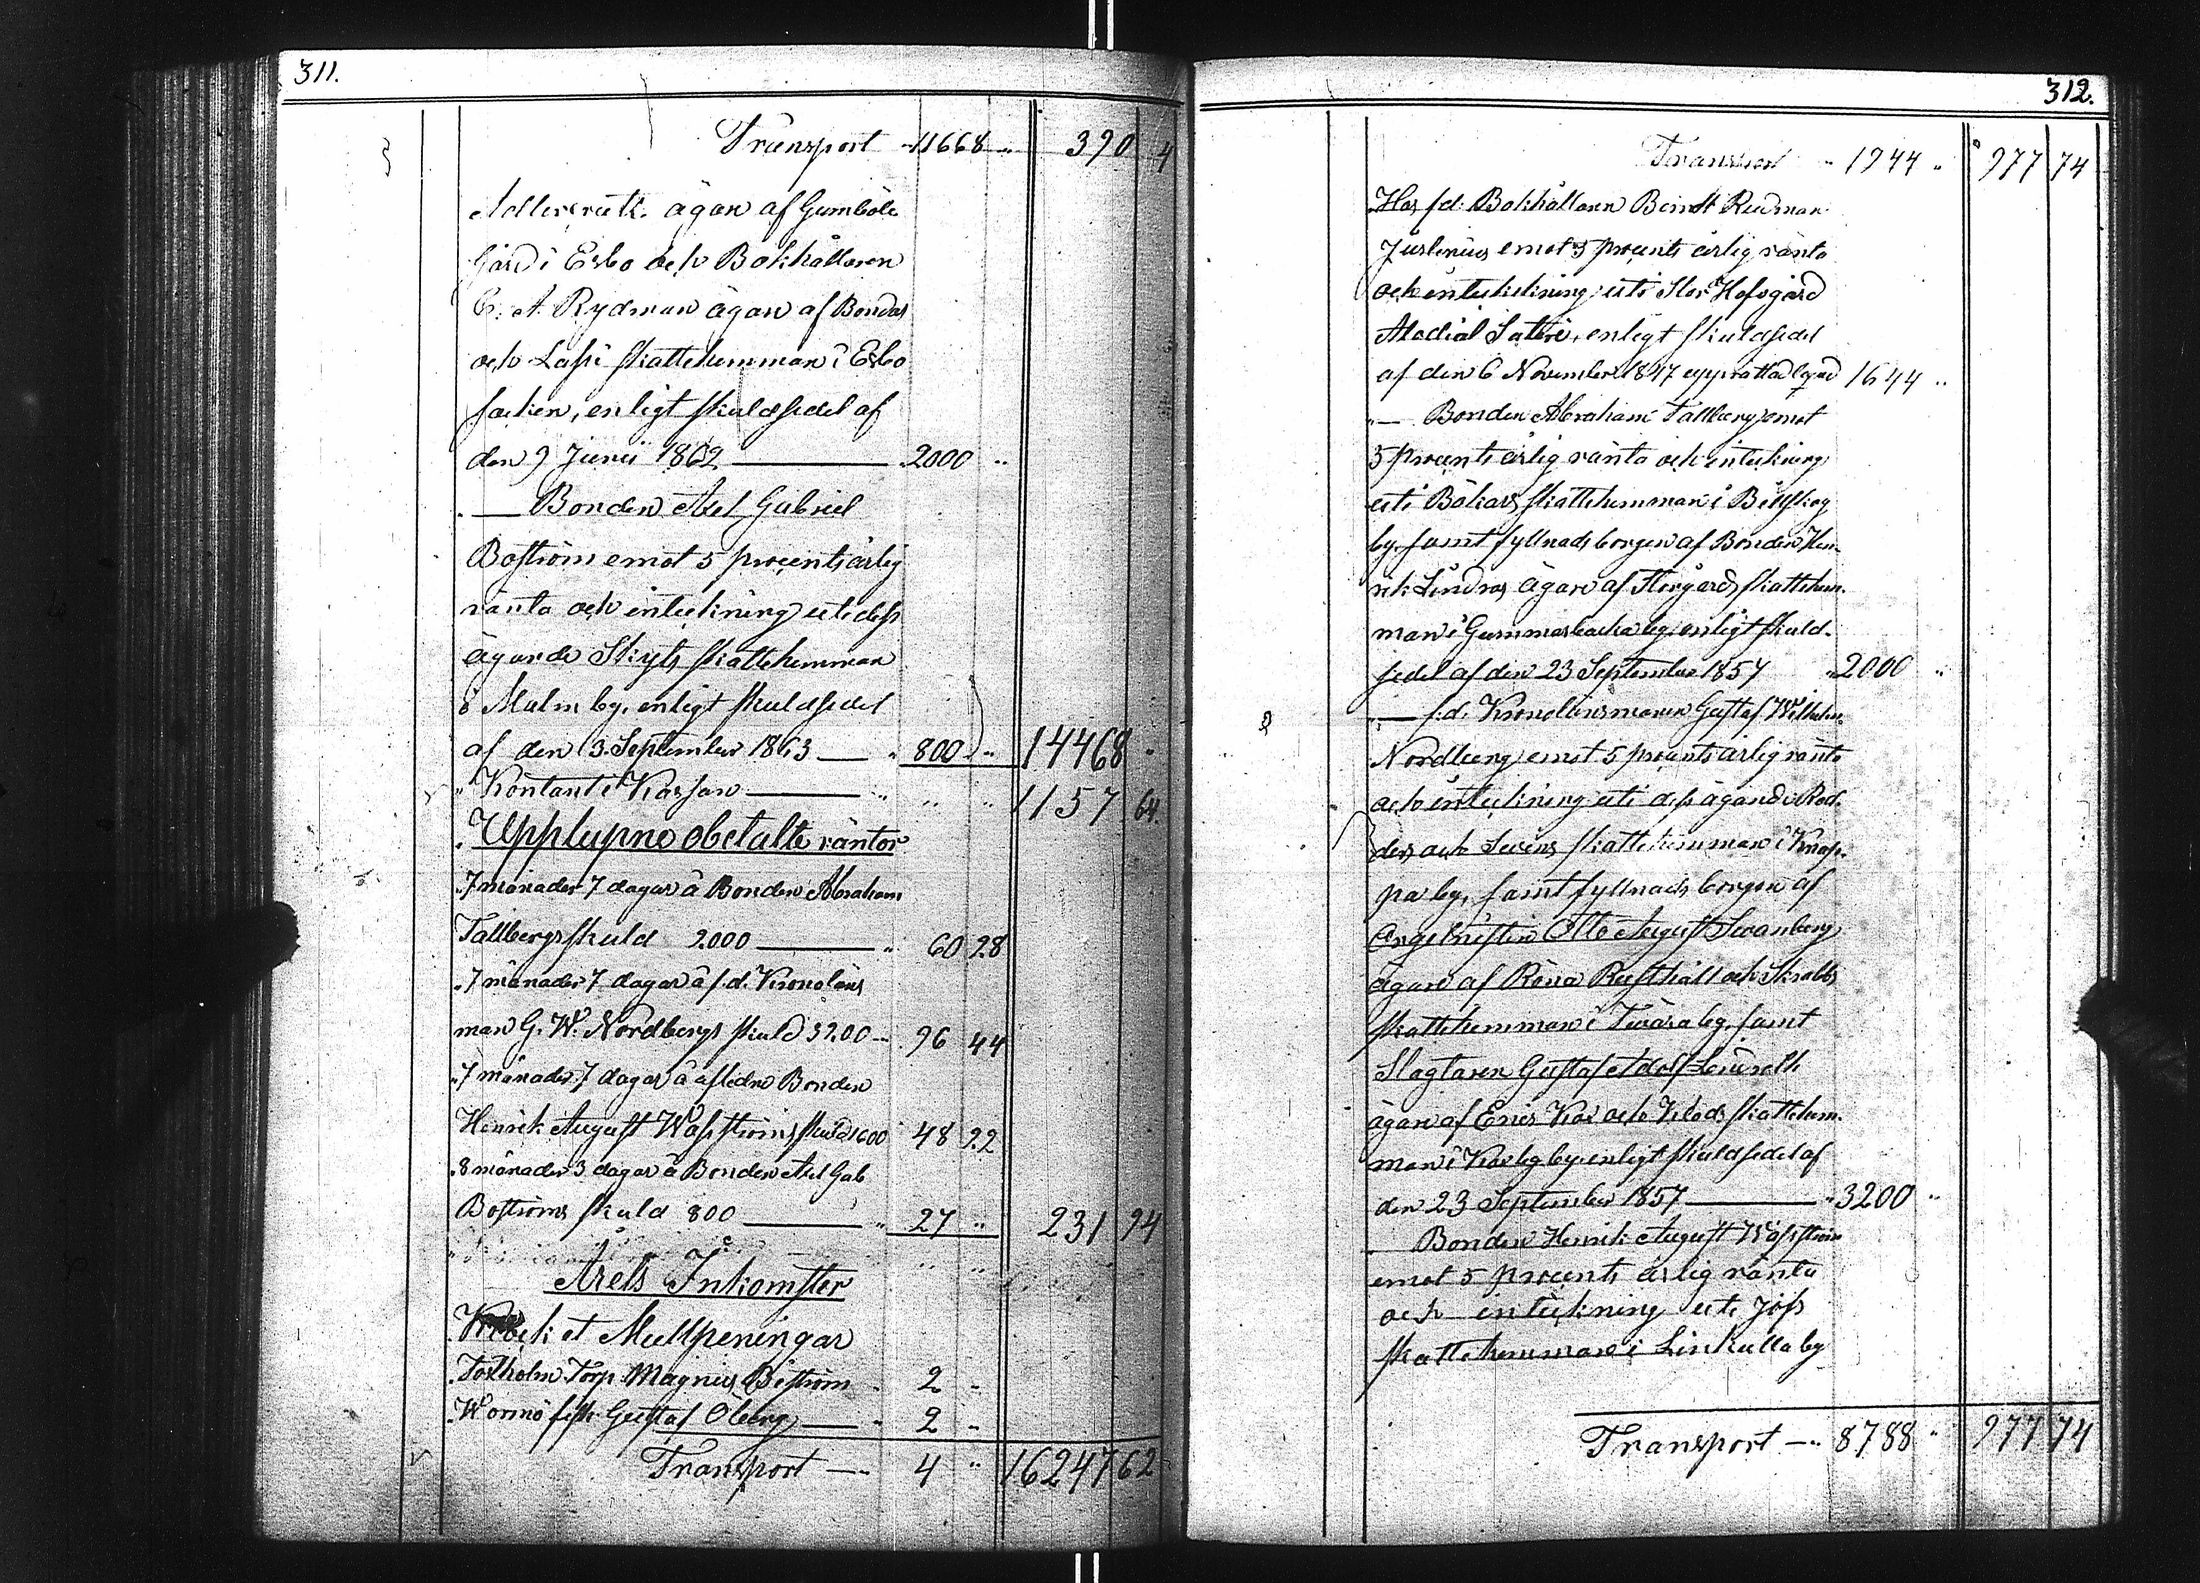 311.
Transport 11668 " 390 4
Adlercreutz ägare af Gumböle
Gård i Esbo och Bokhållaren
C. A. Rydman ägare af Bondas
och Lassi skattehemman i Esbo
socken, enligt skuldsedel af
den 9 Junii 1862 — 2000 "
" — Bonden Axel Gabriel
Boström emot 5 procents årlig
ränta och inteckning uti dess
ägande Skyts skattehemman
i Malm by, enligt skuldsedel
af den 3. September 1863 — " 800 " 14468 "
" Kontant i Kassan — " " " 1157 64
" Upplupne obetalte räntor
" 7 månader 7 dagar å Bonden Abraham
Tallbergs skuld 2000 — " 60 28
" 7 månader 7 dagar å f.d. Kronoläns
man G. W. Nordbergs skuld 3200 — " 96 44
" 7 månader 7 dagar å afledne Bonden
Henrik August Wasströms skuld 1600 48 22
" 8 månader 3 dagar å Bonden Axel Gab
Boströms skuld 800 — " 27 " 231 94
Årets Inkomster
et Mullpeningar
" Torp Magnus Boström " 2 "
" Wormö fisk: Gustaf Öberg — " 2 "
Transport — " 4 " 16247 62
312.
Transport " 1944 " " 977 74
Hos f.d. Bokhållaren Berndt Reidman
Juslenius emot 5 procents årlig ränta
och inteckning uti Stor Hofsgård
Alodial Säteri, enligt skuldsedel
af den 6 November 1847 1644 "
" — Bonden Abraham Tallberg emot
5 procents årlig ränta och inteckning
uti Bökars skattehemman i Billskog
by, samt fyllnads borgen af Bonden Hen-
rik Lindros ägare af Storgårds skattehem-
man i Gummarbacka by, enligt skuld-
sedel af den 23 September 1857 " 2000 "
" — f.d. Kronolänsmanen Gustaf Wilhelm
Nordberg emot 5 procents årlig ränta
och inteckning uti dess ägande Rod-
ders och Svens skattehemman i Knap-
pa by, samt fyllnads borgen af
Otto August Swanberg
ägare af Röna Rusthåll och Skrabbs
skattehemman i by, samt
Slagtaren Gustaf Adolf
ägare af och skattehem-
man i by enligt skuldsedel af
den 23 September 1857 — " 3200 "
Bonden Henrik August Wasström
emot 5 procents årlig ränta
och inteckning uti Jofs
skattehemman i Linkulla by
Transport — " 8788 " 977 74